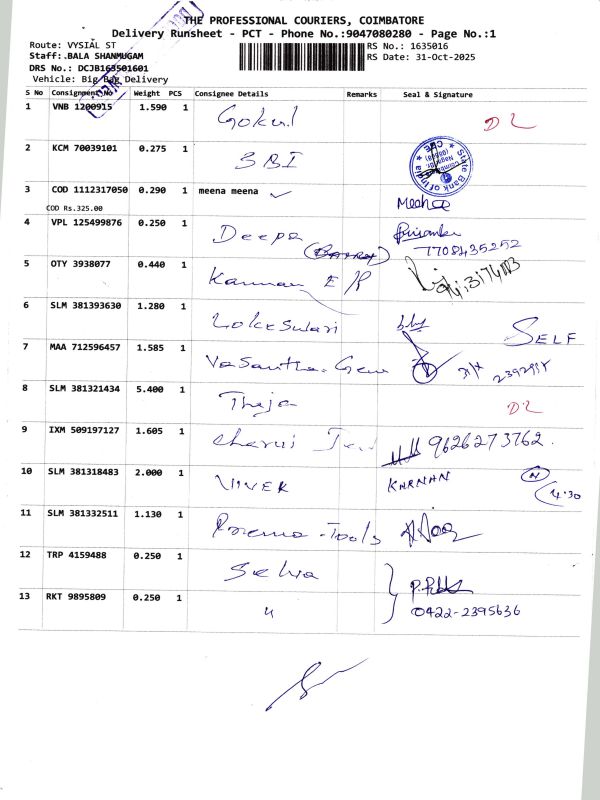 THE PROFESSIONAL COURIERS, COIMBATORE
Delivery Runsheet - PCT - Phone No.:9047080280 - Page No.:1
Route: VYSIAL ST
RS No.: 1635016
Staff: BALA SHANMUGAM
RS Date: 31-Oct-2025
DRS No.: DCJB163501601
Vehicle: Big Bag Delivery
S No Consignment No Weight PCS Consignee Details Remarks Seal & Signature
1 VNB 1200915 1.590 1 Gokul DL
2 KCM 70039101 0.275 1 SBI State Bank of India
3 COD 1112317050 0.290 1 meena meena
COD Rs.325.00 Meena
4 VPL 125499876 0.250 1 Deepa Priyanka
7708435252
5 OTY 3938077 0.440 1 Kannan E/P
6 SLM 381393630 1.280 1 Lokeswari SELF
7 MAA 712596457 1.585 1 Vasantha
8 SLM 381321434 5.400 1 Theja DL
9 IXM 509197127 1.605 1 9626273762
10 SLM 381318483 2.000 1 VIVEK KARNAN
4.30
11 SLM 381332511 1.130 1 Prema-Tools
12 TRP 4159488 0.250 1 Selva
13 RKT 9895809 0.250 1 " 0422-2395636